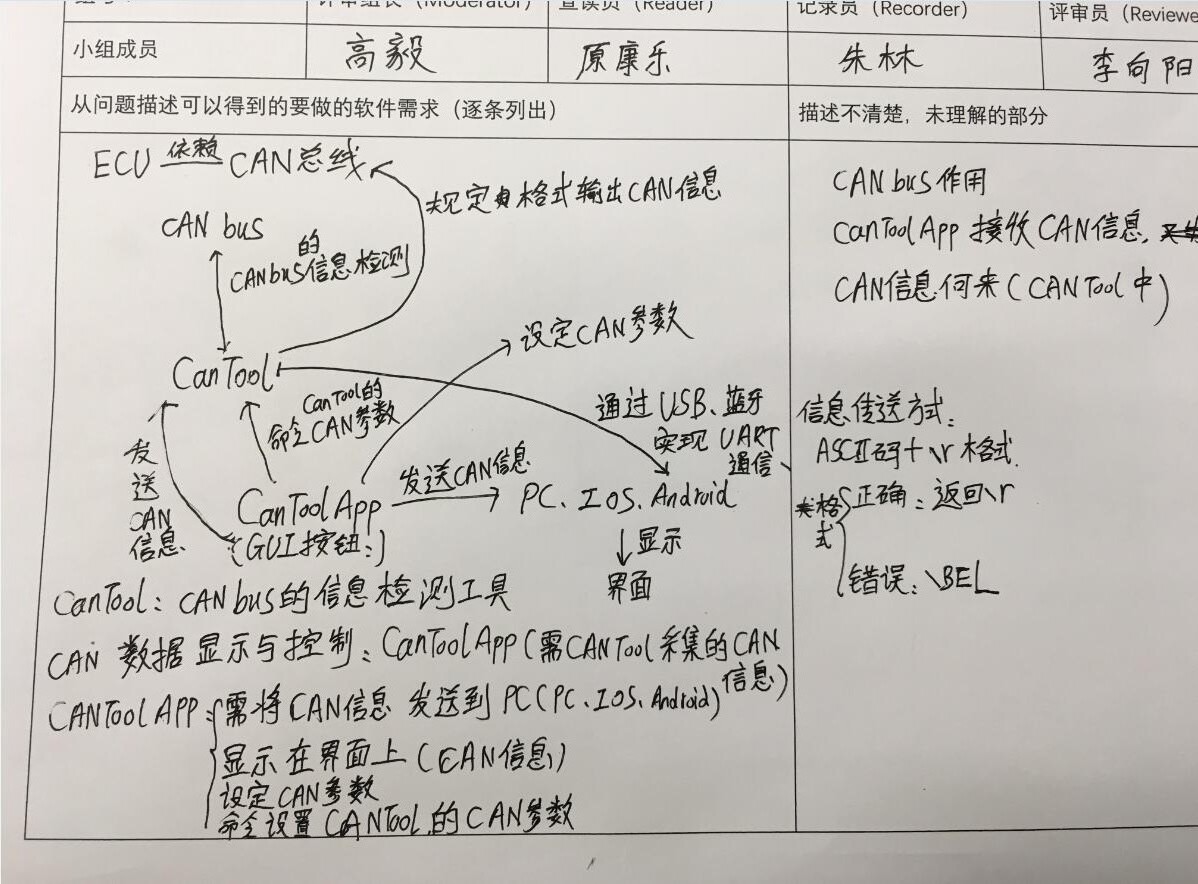 评审组长（Moderator）
宣读员（Reader）
记录员（Recorder）
评审员（Reviewe
小组成员
高毅
原康乐
朱林
李向阳
从问题描述可以得到的要做的软件需求（逐条列出）
描述不清楚，未理解的部分
ECU 依赖 CAN总线
规定 格式输出CAN信息
CAN bus
的
CANbus信息检测
设定CAN参数
CanTool
CanTool的
命令CAN参数
通过USB、蓝牙
实现UART
通信
发送CAN信息
发送CAN信息
CanToolApp
(GUI按钮：)
PC、IOS、Android
显示
界面
CanTool：CANbus的信息检测工具
CAN 数据显示与控制：CanToolApp（需CANTool采集的CAN
信息）
CANToolAPP：需将CAN信息 发送到PC(PC、IOS、Android)
显示在界面上（CAN信息）
设定CAN参数
命令设置CANTool的CAN参数
CANbus作用
CanToolApp接收CAN信息，
CAN信息何来（CANTool中）
信息传送方式：
ASCII码+\r格式.
格式
正确：返回\r
错误：\BEL